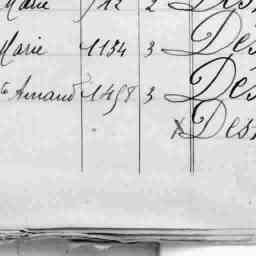 Marie 712 2 Des
Marie 1134 3 Des
Armand 1498 3 Des
x Des